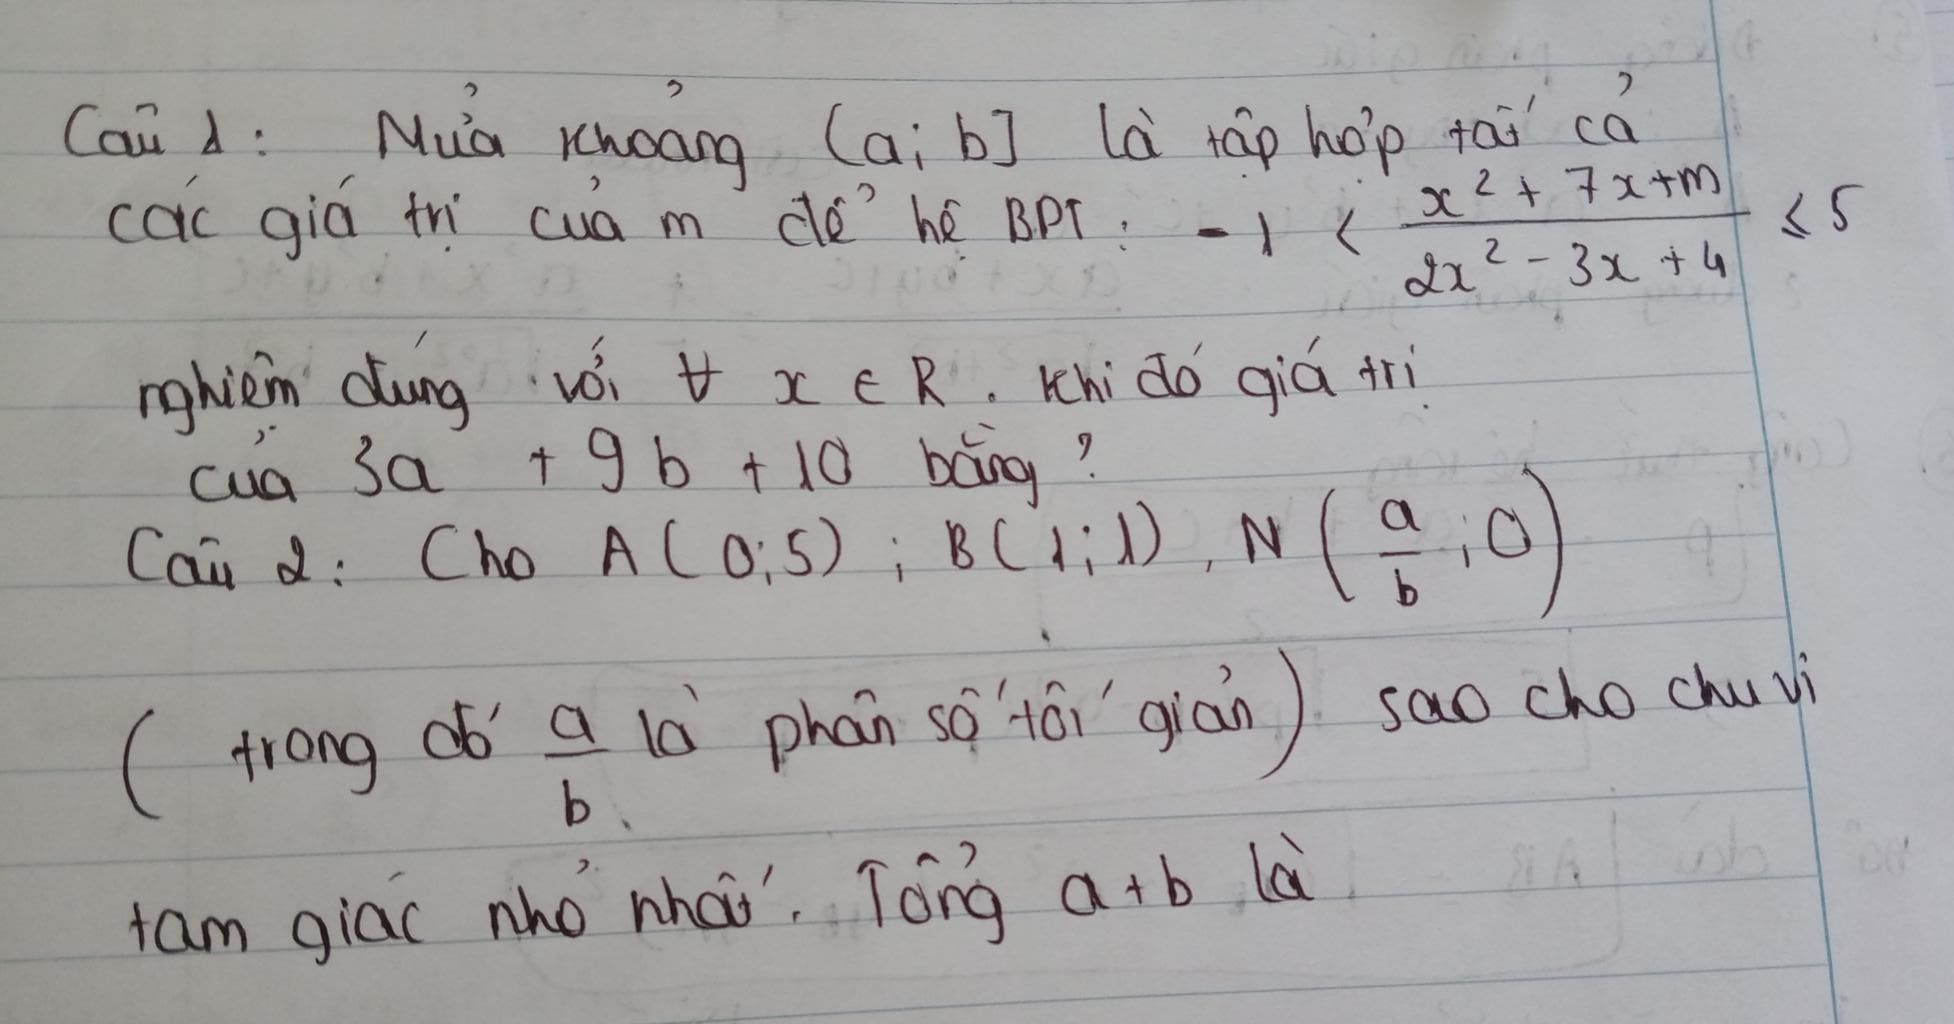 Câu 1: Nửa khoảng (a; b] là tập hợp tất cả
các giá trị của m để hệ BPT: -1 < \frac{x^2 + 7x + m}{2x^2 - 3x + 4} ≤ 5
nghiệm đúng với ∀ x ∈ R. Khi đó giá trị
của 3a + 9b + 10 bằng?
Câu 2: Cho A(0;5); B(1;1), N(\frac{a}{b}; 0)
(trong đó \frac{a}{b} là phân số tối giản) sao cho chu vi
tam giác nhỏ nhất. Tổng a+b là